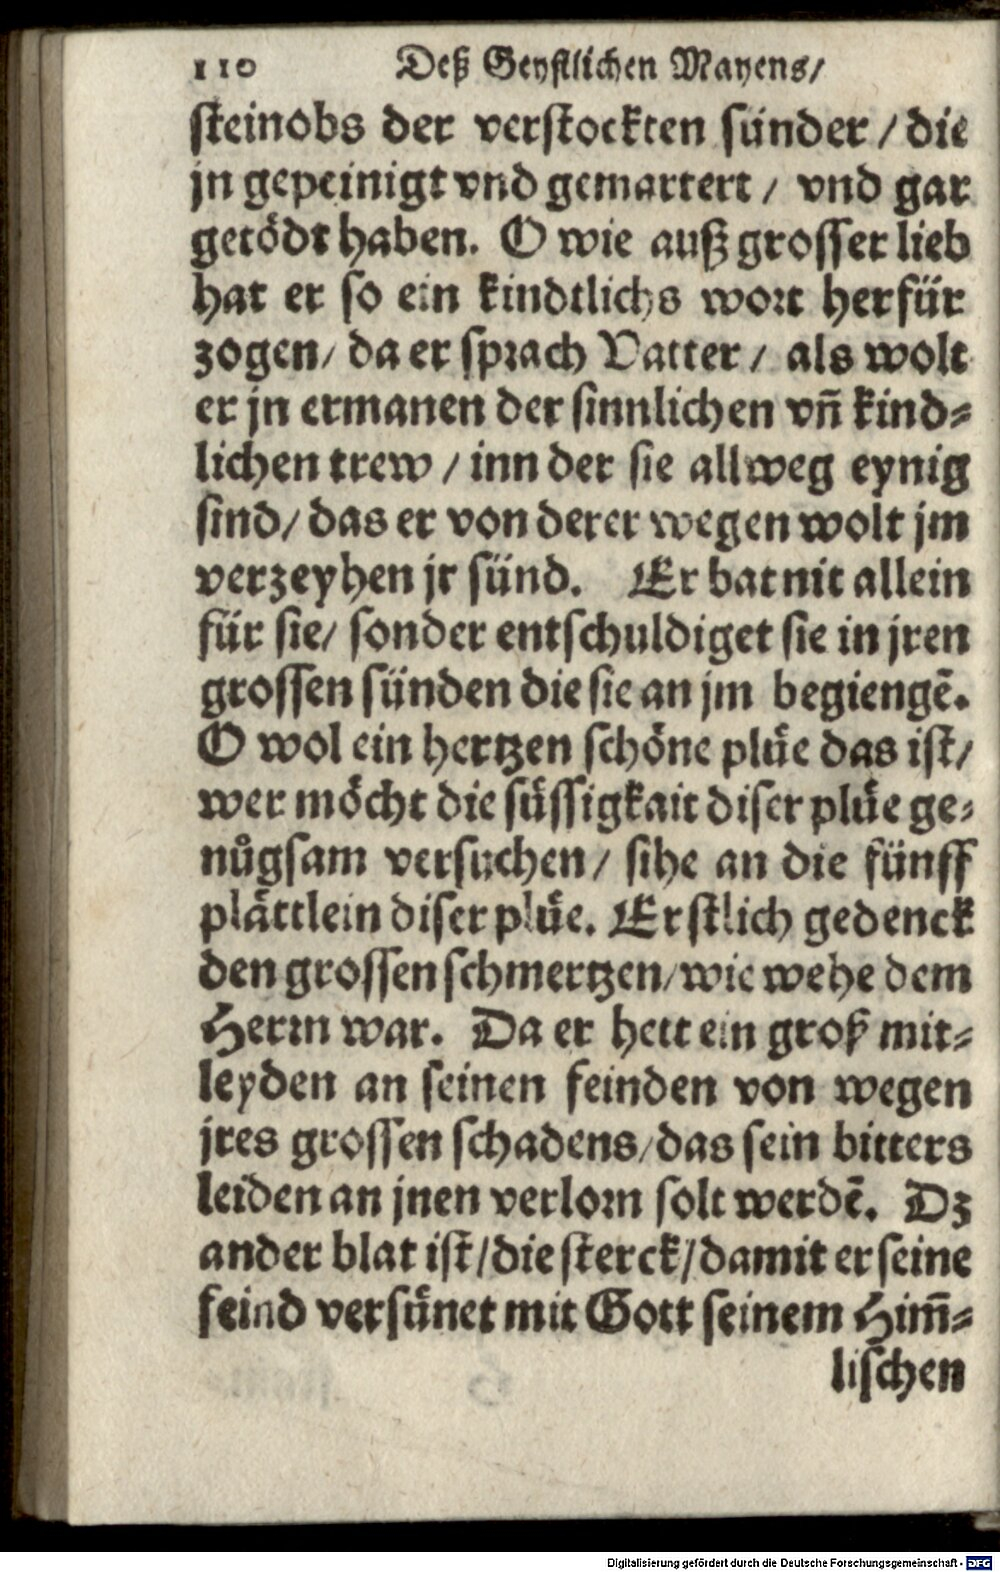 110 Deß Geystlichen Mayens/
steinobs der verstockten sünder / die
jn gepeinigt vnd gemartert / vnd gar
getödt haben. O wie auß grosser lieb
hat er so ein kindtlichs wort herfür
zogen/ da er sprach Vatter / als wolt
er jn ermanen der sinnlichen vñ kind⸗
lichen trew / inn der sie allweg eynig
sind/ das er von derer wegen wolt jm
verzeyhen jr sünd. Er bat nit allein
für sie/ sonder entschuldiget sie in jren
grossen sünden die sie an jm begiengē.
O wol ein hertzen schöne plüe das ist/
wer möcht die süssigkait diser plüe ge⸗
nůgsam versuchen / sihe an die fünff
plättlein diser plüe. Erstlich gedenck
den grossen schmertzen/wie wehe dem
Herrn war. Da er hett ein groß mit⸗
leyden an seinen feinden von wegen
jres grossen schadens/das sein bitters
leiden an jnen verlorn solt werdē. Dz
ander blat ist/die sterck/damit er seine
feind versünet mit Gott seinem Him̄⸗
lischen
Digitalisierung gefördert durch die Deutsche Forschungsgemeinschaft - DFG